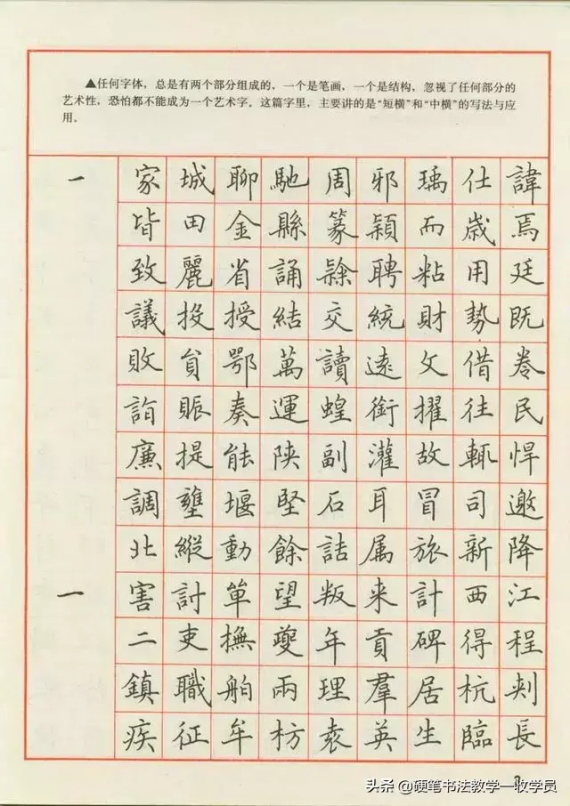 ▲任何字体，总是有两个部分组成的，一个是笔画，一个是结构，忽视了任何部分的
艺术性，恐怕都不能成为一个艺术字，这篇字里，主要讲的是“短横”和“中横”的写法与应
用。
一 家 城 聊 馳 周 邪 瑀 仕 諱
皆 田 金 縣 篆 穎 而 歲 焉
致 麗 省 誦 聘 粘 用 廷
議 投 授 結 交 統 財 勢 既
敗 負 鄂 萬 讀 遠 文 借 卷
詣 賑 奏 運 蝗 銜 擢 往 民
廉 提 能 陝 副 灌 故 輒 悍
調 壅 堰 堅 石 耳 冒 司 邀
北 縱 動 餘 詰 属 旅 新 降
一 害 討 單 望 叛 来 計 西 江
二 吏 撫 夔 年 貢 碑 得 程
鎮 職 舶 兩 理 羣 居 杭 刾
疾 征 牟 枋 袁 英 生 臨 長
头条 @硬笔书法教学一收学员